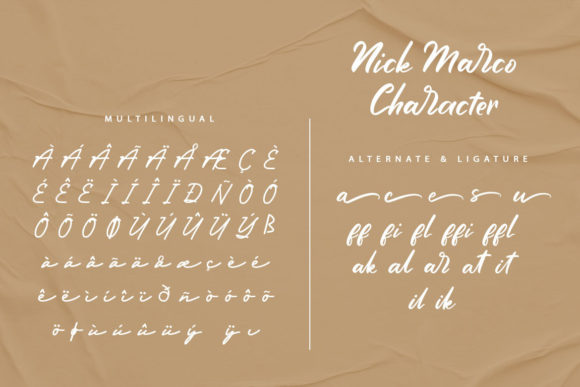 Nick Marco
Character
MULTILINGUAL
À Á Â Ã Ä Å Æ Ç È
É Ê Ë Ì Í Î Ï Ð Ñ Ò Ó
Ô Õ Ö Ø Ù Ú Û Ü Ý ß
à á â ã ä å æ ç è é
ê ë ì í î ï ð ñ ò ó ô õ
ö ø ù ú û ü ý ÿ
ALTERNATE & LIGATURE
a c e s u
ff fi fl ffi ffl
ak al ar at it
il ik